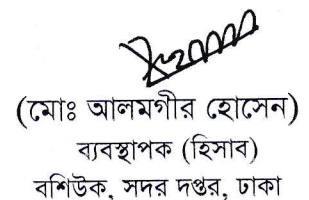 (মোঃ আলমগীর হোসেন)
ব্যবস্থাপক (হিসাব)
বশিউক, সদর দপ্তর, ঢাকা